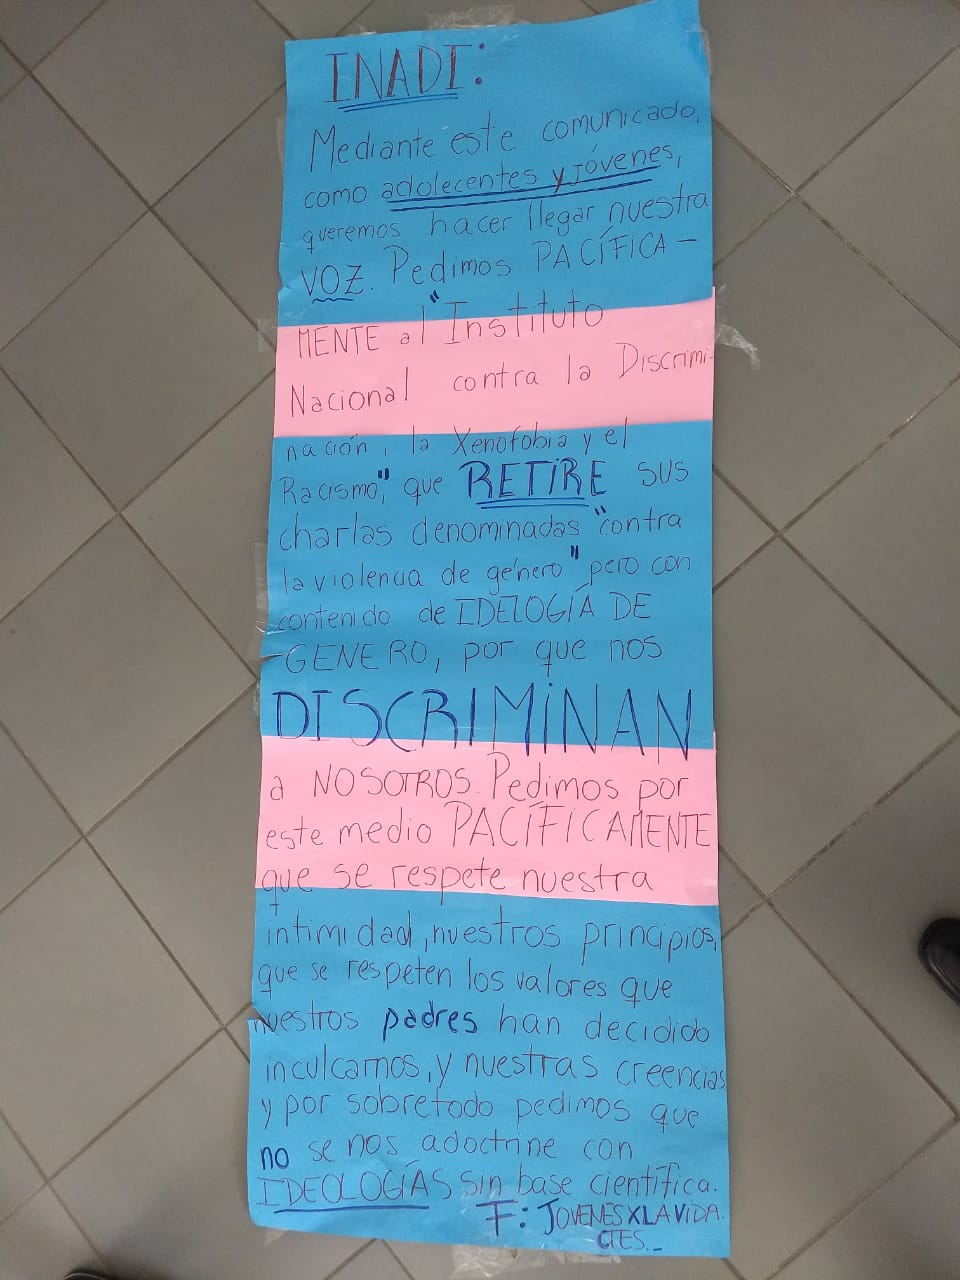 INADI:
Mediante este comunicado,
como adolecentes y jóvenes,
queremos hacer llegar nuestra
VOZ. Pedimos PACÍFICA-
MENTE al "Instituto
Nacional contra la Discrimi-
nación, la Xenofobia y el
Racismo", que RETIRE sus
charlas denominadas "contra
la violencia de género" pero con
contenido de IDELOGÍA DE
GENERO, por que nos
DISCRIMINAN
a NOSOTROS. Pedimos por
este medio PACÍFICAMENTE
que se respete nuestra
intimidad, nuestros principios,
que se respeten los valores que
nuestros padres han decidido
inculcarnos, y nuestras creencias
y por sobretodo pedimos que
no se nos adoctrine con
IDEOLOGÍAS sin base científica.
F: JOVENESXLAVIDA.
CTES._